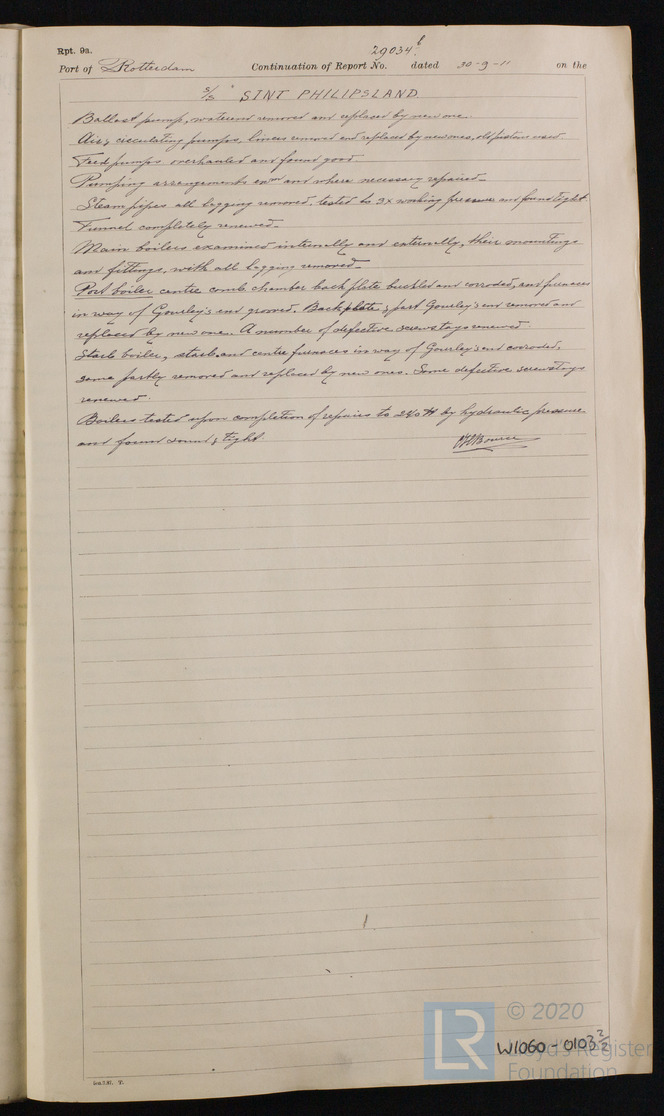 Rpt. 9a.
29034 b
Port of Rotterdam Continuation of Report No. dated 30-9-11 on the
S/S SINT PHILIPSLAND
Ballast pump, waterend removed and replaced by new one.
Air & circulating pumps, liners removed and replaced by new ones, old pistons used.
Feed pumps overhauled and found good
Pumping arrangements exed and where necessary repaired.
Steam pipes all lagging removed, tested to 2x working pressure and found tight.
Funnel completely renewed.
Main boilers examined internally and externally, their mountings
and fittings, with all lagging removed.
Port boiler centre comb. chamber back plate buckled and corroded, and furnaces
in way of Gourley's end grooved. Back plate & part Gourley's end removed and
replaced by new one. A number of defective screwstays renewed.
Starb boiler, starb. and centre furnaces in way of Gourley's end corroded,
same partly removed and replaced by new ones. Some defective screwstays
renewed.
Boilers tested upon completion of repairs to 240 lb by hydraulic pressure
and found sound & tight.
© 2020
LR
W1060-0103 2/2
Lloyd's Register
Foundation